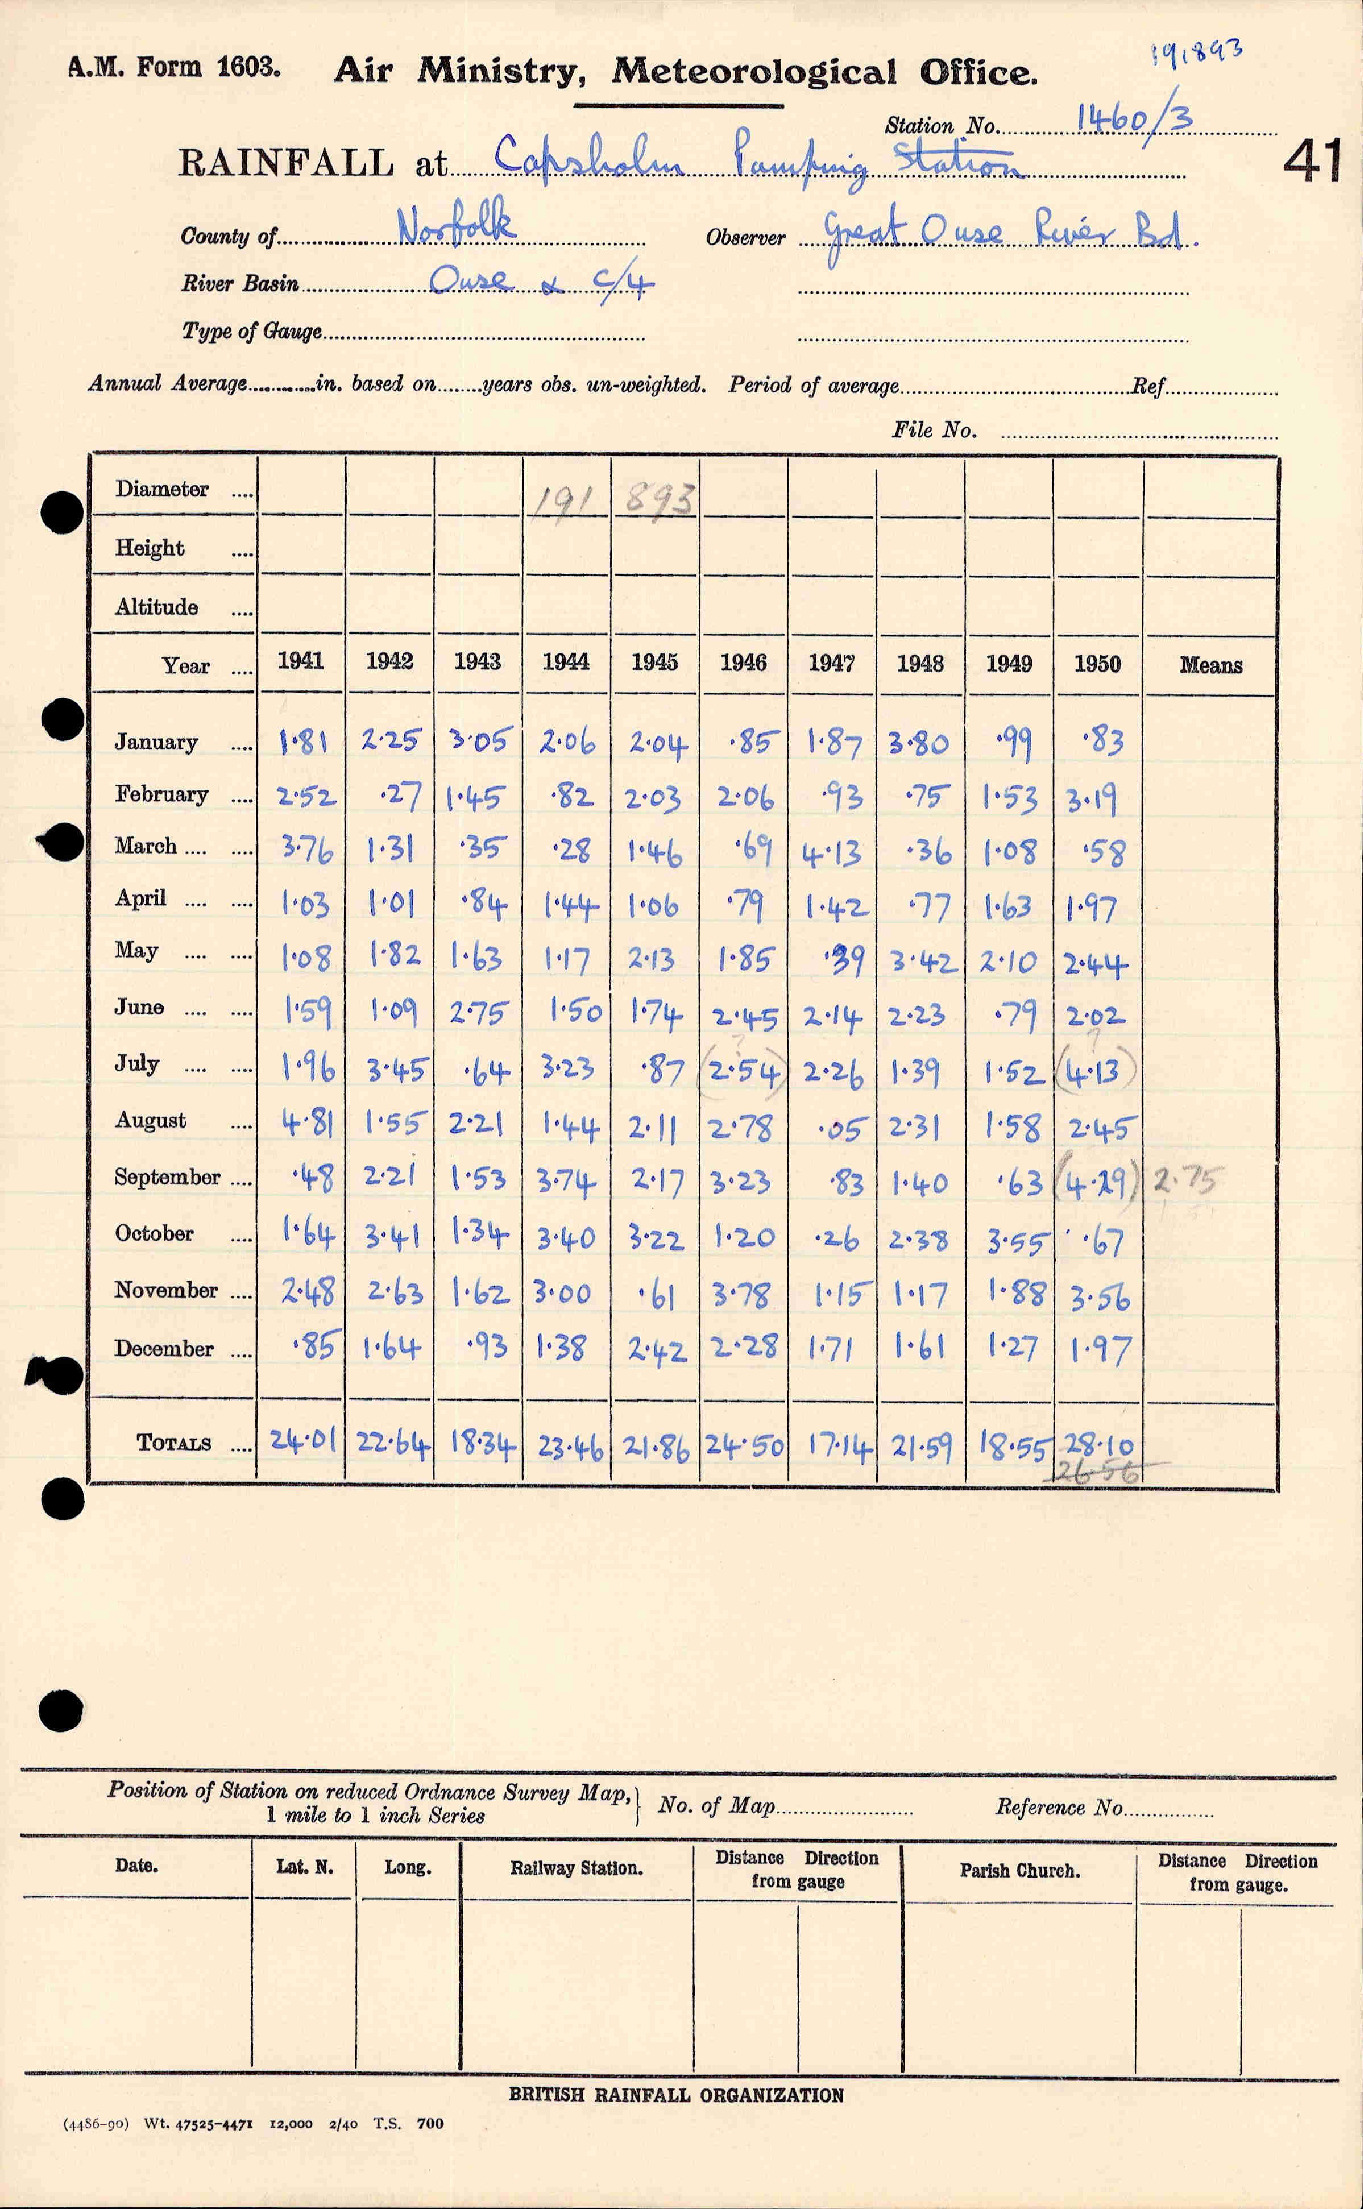 191893
A.M. Form 1603. Air Ministry, Meteorological Office.
Station No. 1460/3
RAINFALL at Capsholm Pumping Station
41
County of Norfolk Observer Great Ouse River Bd.
River Basin Ouse & C/4
Type of Gauge
Annual Average in. based on years obs. un-weighted. Period of average Ref
File No.
Diameter 191 893
Height
Altitude
Year 1941 1942 1943 1944 1945 1946 1947 1948 1949 1950 Means
January 1.81 2.25 3.05 2.06 2.04 .85 1.87 3.80 .99 .83
February 2.52 .27 1.45 .82 2.03 2.06 .93 .75 1.53 3.19
March 3.76 1.31 .35 .28 1.46 .69 4.13 .36 1.08 .58
April 1.03 1.01 .84 1.44 1.06 .79 1.42 .77 1.63 1.97
May 1.08 1.82 1.63 1.17 2.13 1.85 .39 3.42 2.10 2.44
June 1.59 1.09 2.75 1.50 1.74 2.45 2.14 2.23 .79 2.02
? ?
July 1.96 3.45 .64 3.23 .87 (2.54) 2.26 1.39 1.52 (4.13)
August 4.81 1.55 2.21 1.44 2.11 2.78 .05 2.31 1.58 2.45
September .48 2.21 1.53 3.74 2.17 3.23 .83 1.40 .63 (4.29) 2.75
October 1.64 3.41 1.34 3.40 3.22 1.20 .26 2.38 3.55 .67
November 2.48 2.63 1.62 3.00 .61 3.78 1.15 1.17 1.88 3.56
December .85 1.64 .93 1.38 2.42 2.28 1.71 1.61 1.27 1.97
TOTALS 24.01 22.64 18.34 23.46 21.86 24.50 17.14 21.59 18.55 28.10
26.56
Position of Station on reduced Ordnance Survey Map, } No. of Map Reference No.
1 mile to 1 inch Series
Date. Lat. N. Long. Railway Station. Distance Direction from gauge Parish Church. Distance Direction from gauge.
BRITISH RAINFALL ORGANIZATION
(4486-90) Wt. 47525-4471 12,000 2/40 T.S. 700